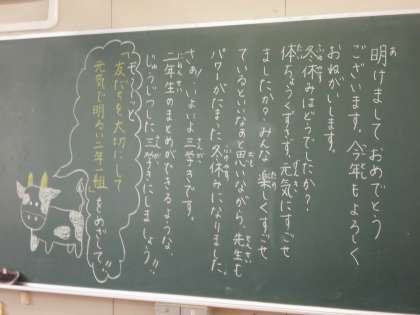 明けまして おめでとう
ございます。今年もよろしく
おねがいします。
冬休みはどうでしたか？
体ちょうくずさず、元気にすごせ
ましたか？みんな 楽しくすごせ
ているといいなぁと思いながら、先生も
パワーがたまった冬休みになりました。
さぁ！いよいよ三学きです。
二年生のまとめができるような、
じゅうじつした三学きにしましょう!!
「モ〜っと
友だちを大切にして
元気で明るい二年一組」をめざして!!